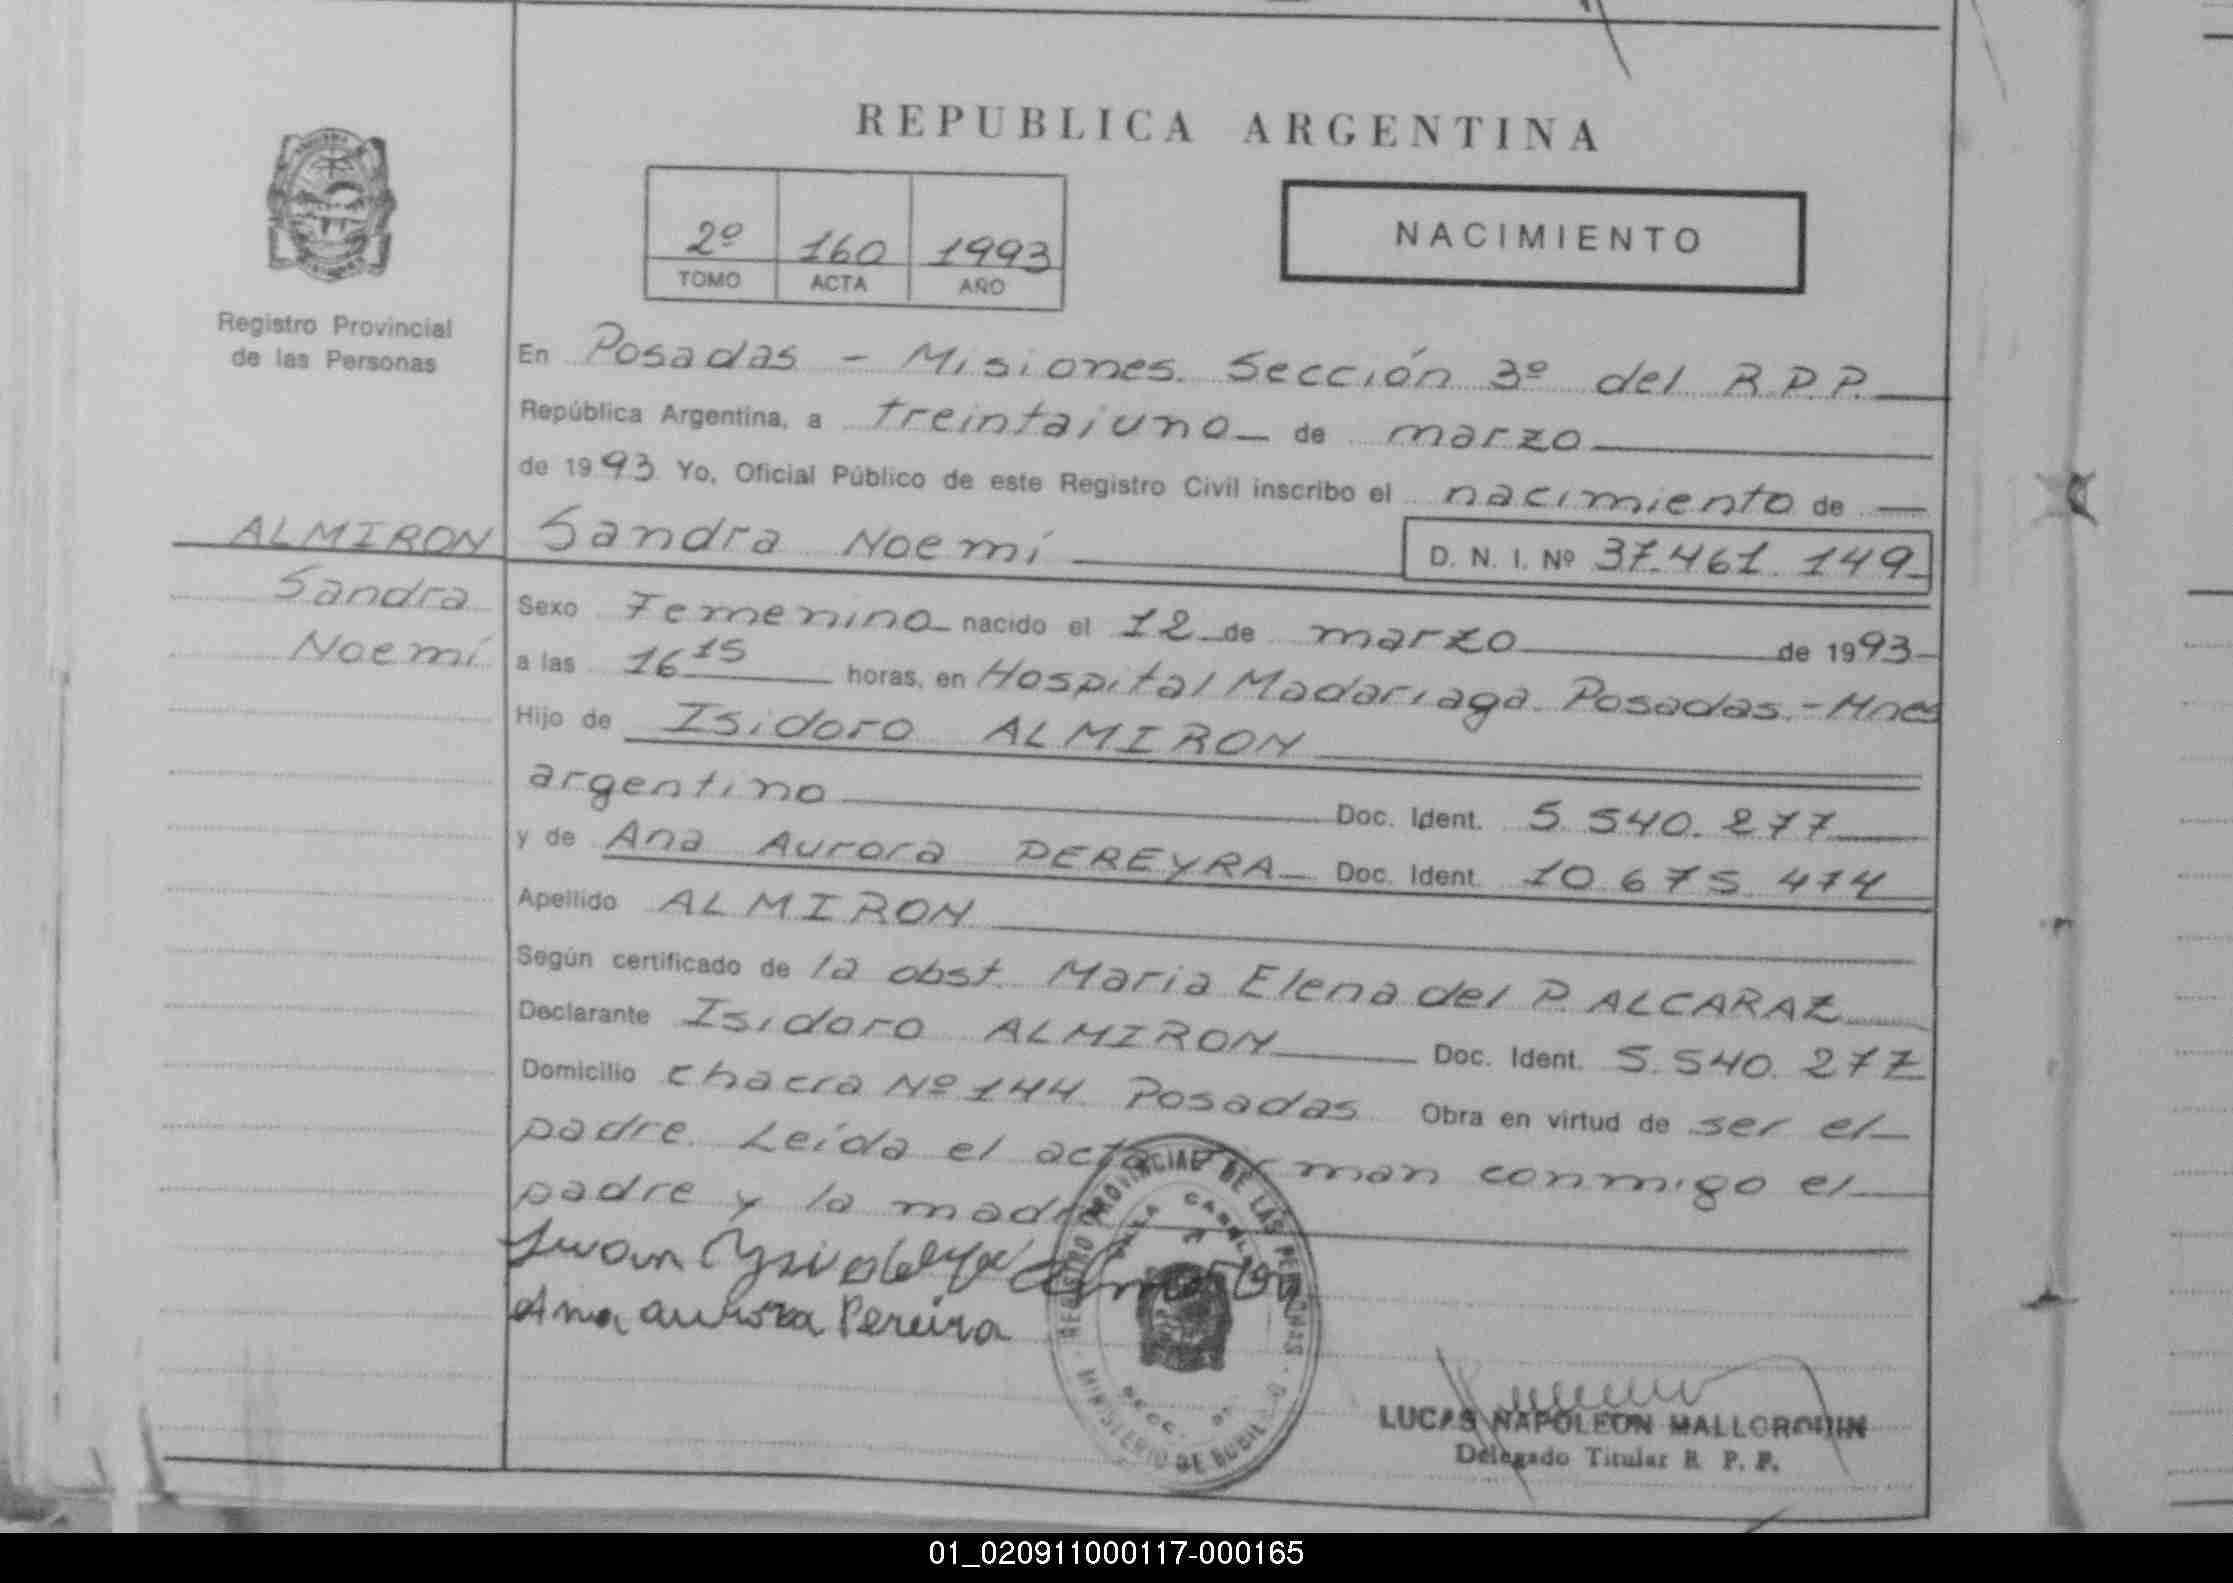 REPUBLICA ARGENTINA
2º 160 1993
TOMO ACTA AÑO
NACIMIENTO
Registro Provincial
de las Personas
En Posadas - Misiones. Sección 3º del R.P.P.
República Argentina, a treintaiuno de marzo
de 1993 Yo, Oficial Público de este Registro Civil inscribo el nacimiento de
ALMIRON Sandra Noemí D. N. I. Nº 37.461.149
Sandra
Noemí
Sexo Femenino nacido el 12 de marzo de 1993
a las 16 15 horas, en Hospital Madariaga. Posadas.-Mnes
Hijo de Isidoro ALMIRON
argentino Doc. Ident. 5.540.277
y de Ana Aurora PEREYRA Doc. Ident. 10.675.474
Apellido ALMIRON
Según certificado de la obst. Maria Elena del P. ALCARAZ
Declarante Isidoro ALMIRON Doc. Ident. 5.540.277
Domicilio chacra Nº 144 Posadas Obra en virtud de ser el
padre. Leída el acta man conmigo el
padre y la madre
Juan
Ana aurora Pereira
REGISTRO PROVINCIAL DE LAS PERSONAS
MINISTERIO DE GOBIERNO
LUCAS NAPOLEON MALLORQUIN
Delegado Titular R. P. P.
01_020911000117-000165